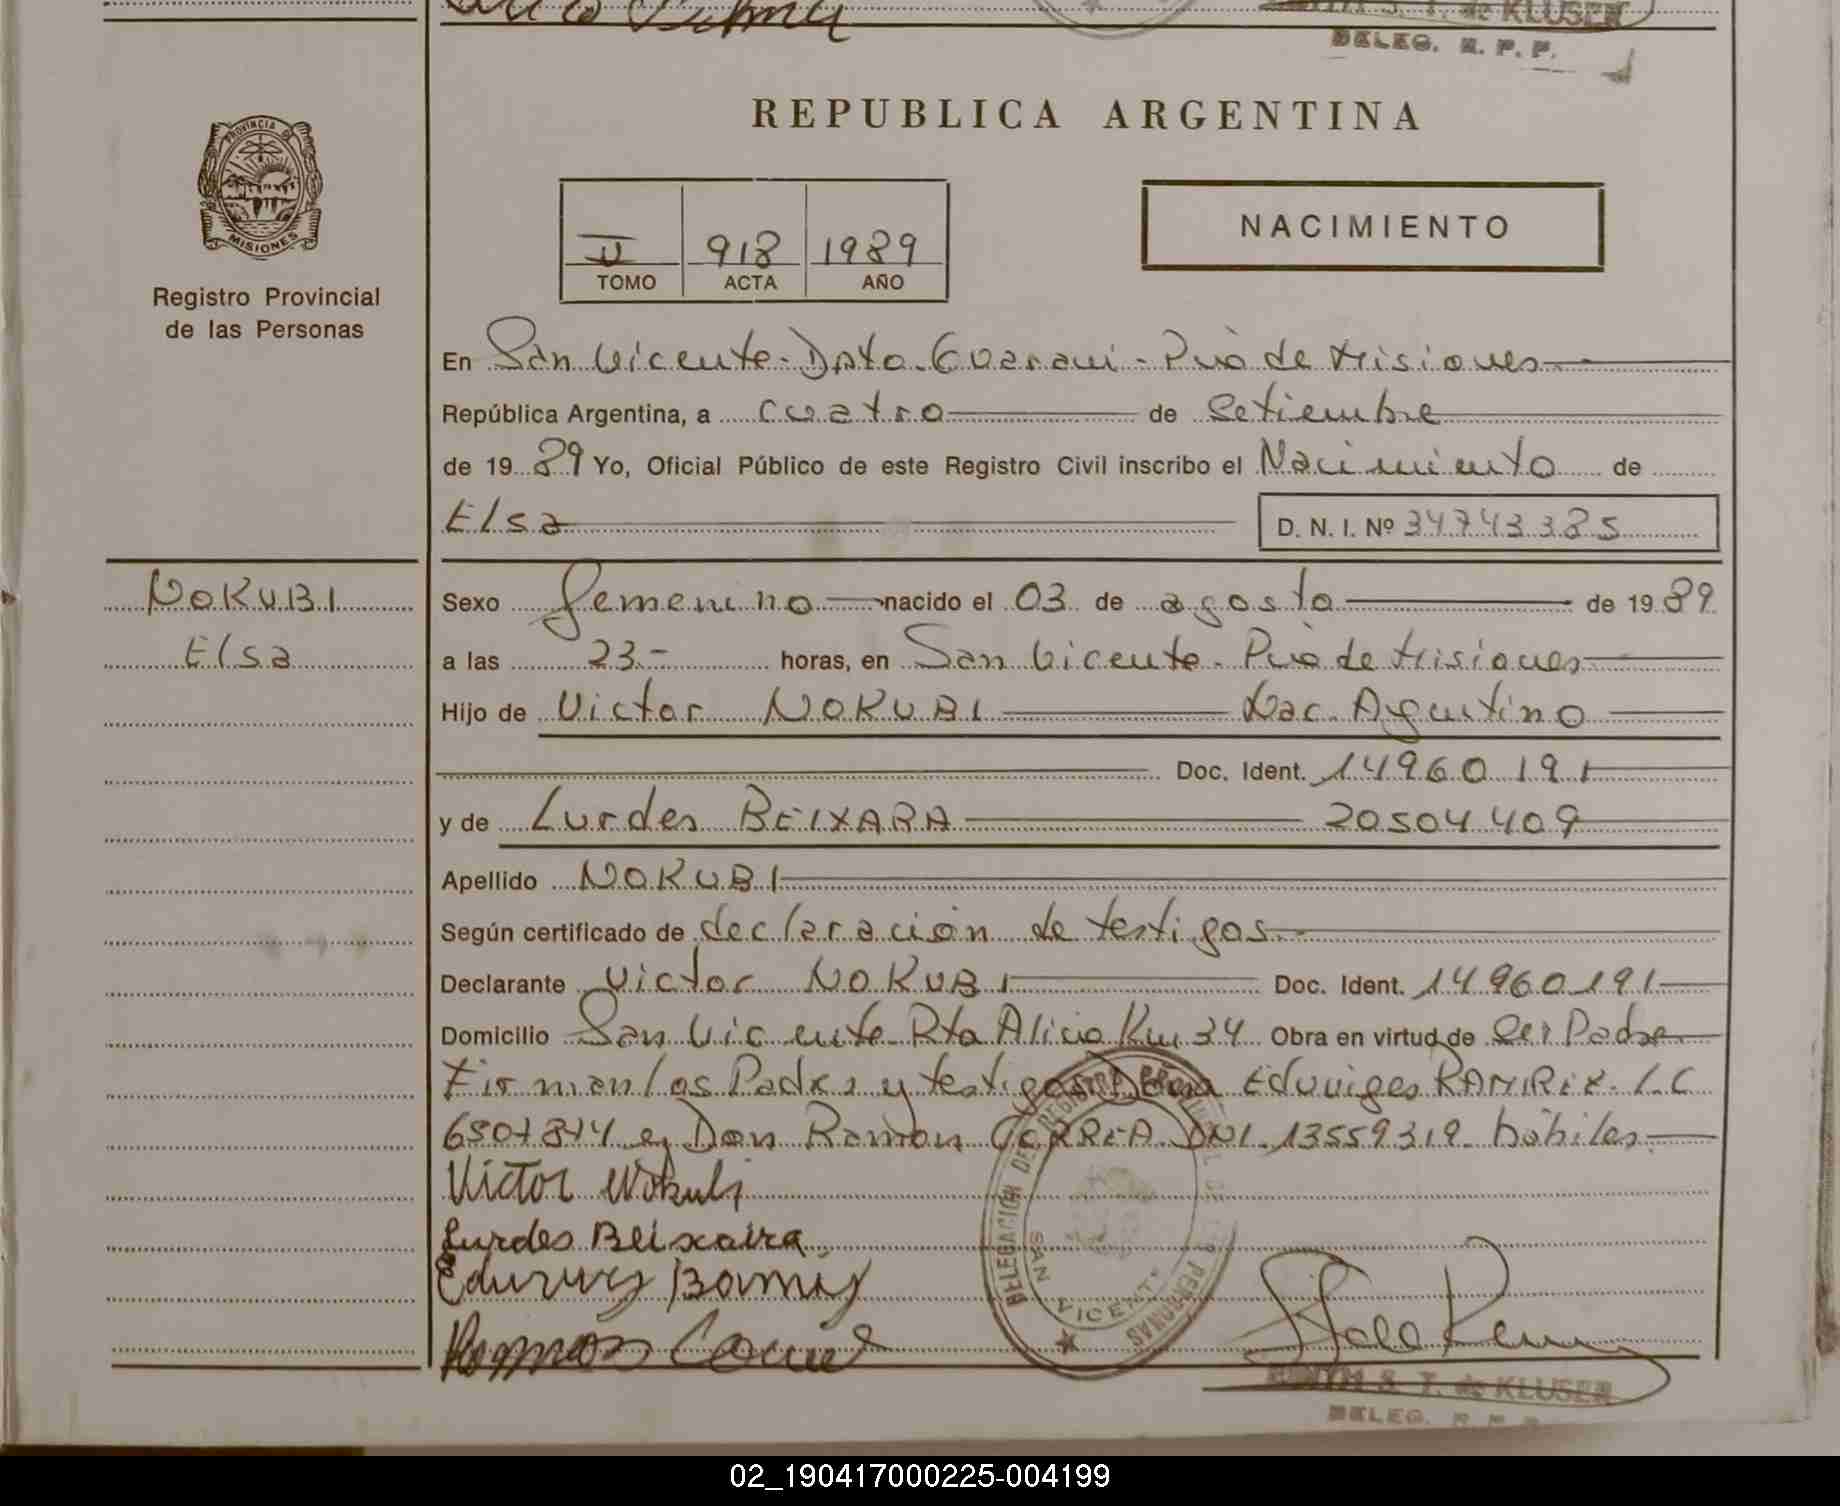 DELEG. R. P. P.
REPUBLICA ARGENTINA
PROVINCIA D
MISIONES
Registro Provincial
de las Personas
II 918 1989
TOMO ACTA AÑO
NACIMIENTO
En San Vicente - Dpto. Guarani - Pvia de Misiones
República Argentina, a cuatro de Setiembre
de 1989 Yo, Oficial Público de este Registro Civil inscribo el Nacimiento de
Elsa D. N. I. Nº 34743385
NOKUBI
Elsa
Sexo femenino nacido el 03 de agosto de 1989
a las 23.- horas, en San Vicente - Pvia de Misiones
Hijo de Victor NOKUBI Nac. Argentino
Doc. Ident. 14960191
y de Lurdes BEIXARA 20504409
Apellido NOKUBI
Según certificado de declaración de testigos
Declarante Victor NOKUBI Doc. Ident. 14960191
Domicilio San Vicente Rta Alicia Km 34 Obra en virtud de Ser Padre
Firman los Padres y testigos Eduviges RAMIREZ. L.C
y Don Ramon CORREA DNI. 13559319 hábiles
Victor Nokubi
Lurdes Beixaira
DELEGACION DEL REGISTRO PROVINCIAL DE LAS PERSONAS
SAN VICENTE
S. T. de KLUSER
DELEG. R. P. P.
02_190417000225-004199